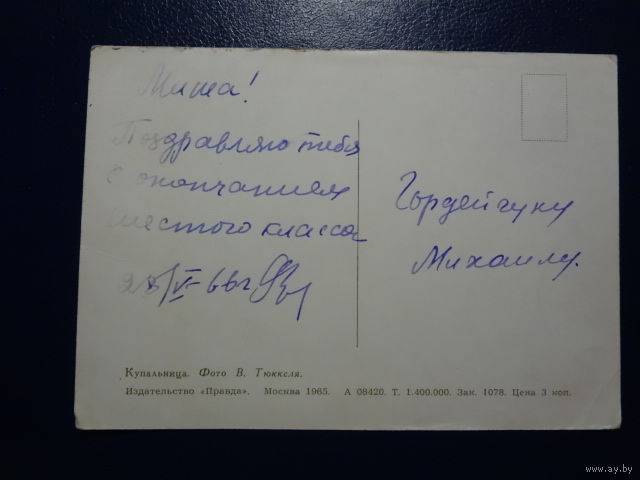 Миша!
Поздравляю тебя
с окончанием
шестого класса
28/V-66г
Гордейчуку
Михаилу.
Купальница. Фото В. Тюккеля.
Издательство «Правда». Москва 1965. А 08420. Т. 1.400.000. Зак. 1078. Цена 3 коп.
www.ay.by